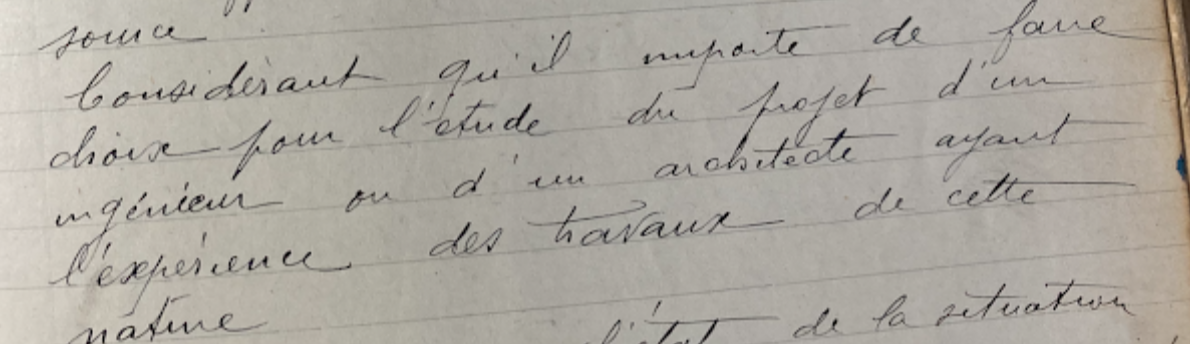 source
Considérant qu'il importe de faire
choix pour l'étude du projet d'un
ingénieur ou d'un architecte ayant
l'expérience des travaux de cette
nature
l'état de la situation